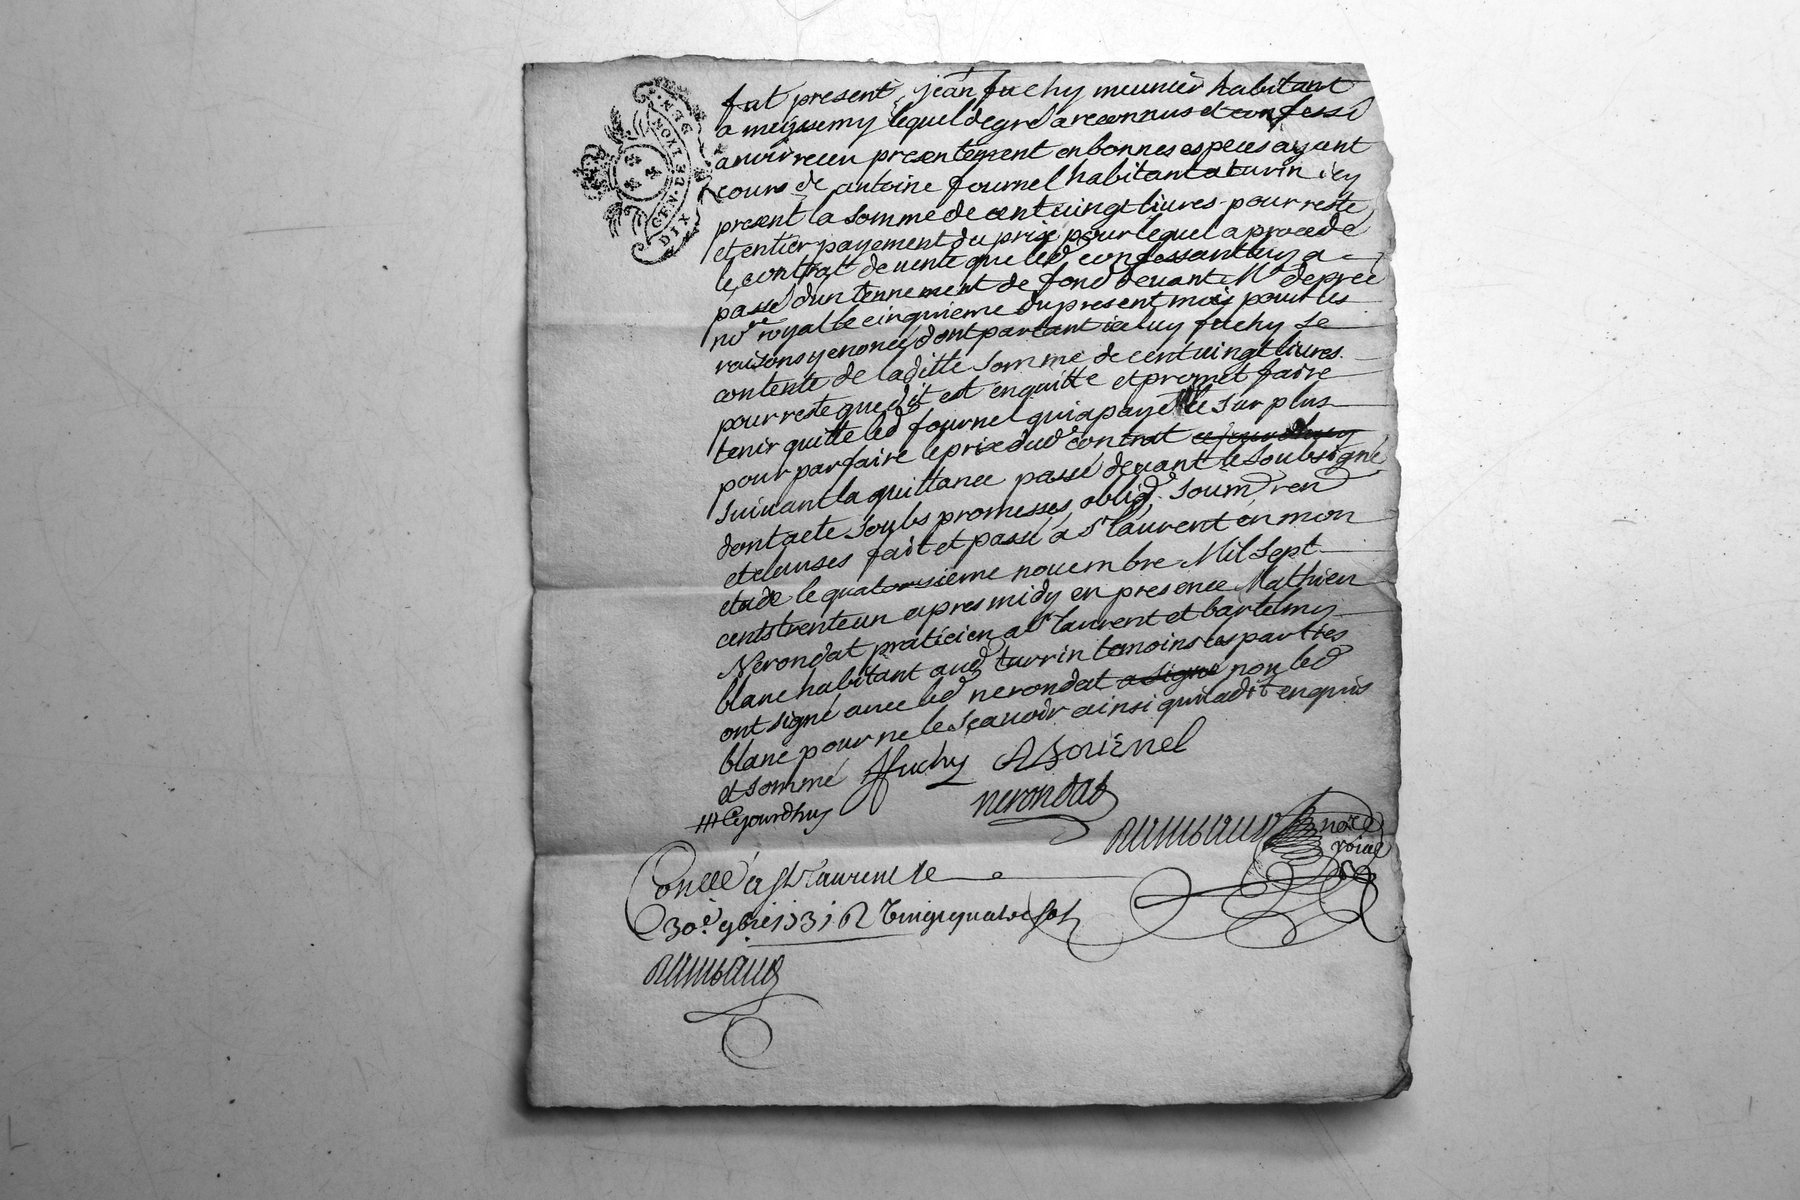 GEN. DE LYON
DIX DEN.
fut present jean fuchy munier habitant
a meyssemy lequel de gre a reconnus et confesse
avoir receu presentement en bonnes especes ayant
cours de antoine fournel habitant a turin icy
present la somme de cent vingt livres pour reste
et entier payement du prix pour lequel a procede
le contrat de vente que led confessant luy a
passé d'un tennement de fond devant Me depree
nore royal le cinquieme du present mois pour les
raisons y enoncé dont partant iceluy fuchy se
contente de laditte somme de cent vingt livres
pour reste que dit est en quitte et promet faire
tenir quitte led fournel qui a payé le surplus
pour parfaire le prix dud contrat ce jourdhuy
suivant la quittance passé devant le soubsigné
dont acte soubs promesses, oblig. soum. ren
et clauses fait et passé a St laurent en mon
etude le quatorsieme novembre Mil sept
cents trente un apres midy en presence Mathieu
Nerondat praticien a St laurent et bartelmy
blanc habitant aud turrin temoins les parties
ont signé avec led nerondat a signé non led
blanc pour ne le sçavoir ainsi qu'il a dit enquis
et sommé Jfuchy A fournel
nerondat
/// Cejourdhuy
nore
roial
Conllé a St Laurent le
30e 9bre 1731 R vingt quatre sols